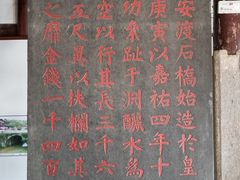 安渡石橋始造於皇
庚寅以嘉祐四年十
功絫趾于淵釃水為
空以行其長三千六
五尺翼以扶欄如其
之靡金錢一千四百